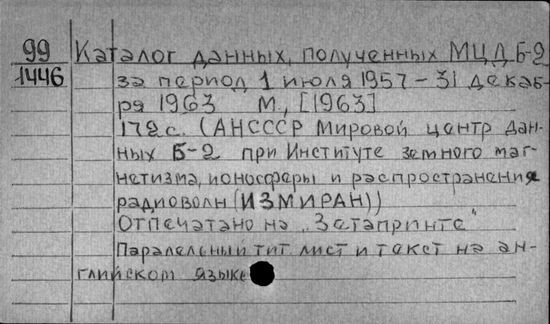 99 Каталог данных, полученных МЦД Б-2
1446 за период 1 июля 1957 – 31 декаб-
ря 1963 М., [1963]
172 с. (АНСССР Мировой центр дан-
ных Б-2 при Институте земного маг-
нетизма, ионосферы и распространения
радиоволн (ИЗМИРАН))
Отпечатано на „Зетапринте"
Паралельный тит. лист и текст на ан-
глийском языке